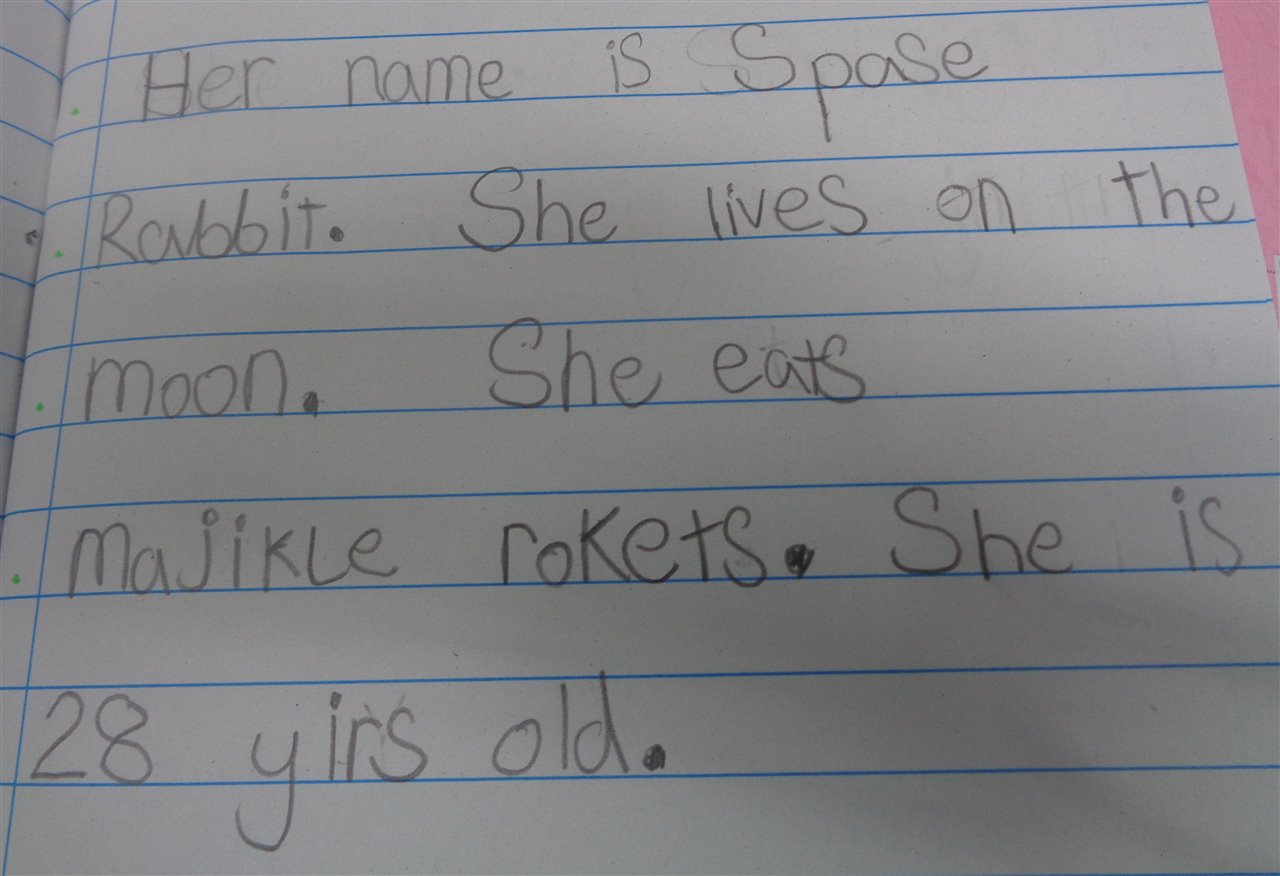 Her name is Spase
Rabbit. She lives on the
moon. She eats
majikle rokets. She is
28 yirs old.